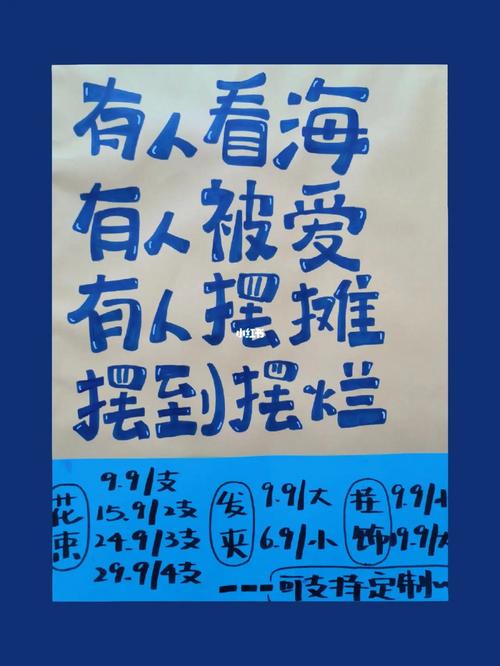 有人看海
有人被爱
有人摆摊
小红书
摆到摆烂
花束
9.9/支
15.9/2支
24.9/3支
29.9/4支
发夹
9.9/大
6.9/小
挂饰
9.9/小
19.9/大
---可支持定制~